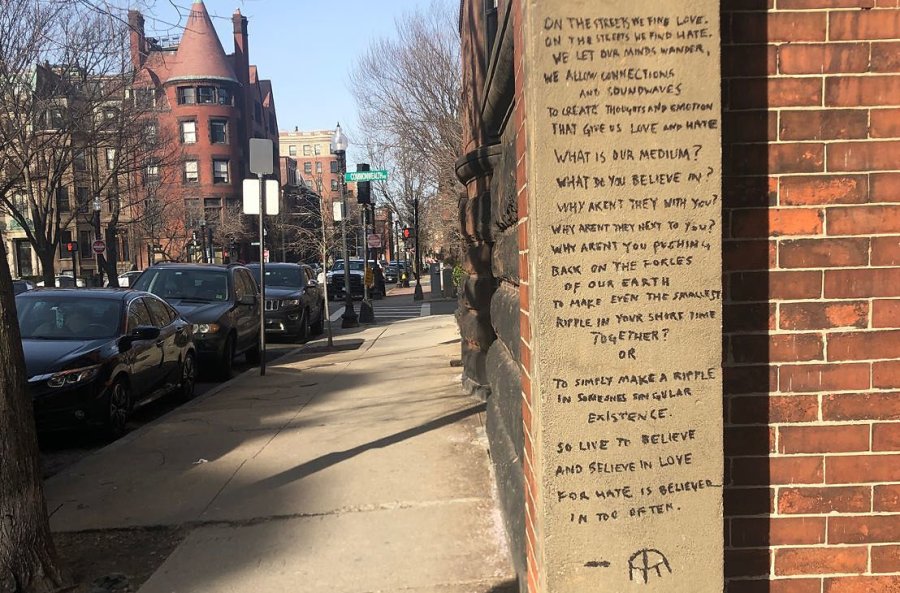 ON THE STREETS WE FIND LOVE.
ON THE STREETS WE FIND HATE.
WE LET OUR MINDS WANDER,
WE ALLOW CONNECTIONS
AND SOUNDWAVES
TO CREATE THOUGHTS AND EMOTION
THAT GIVE US LOVE AND HATE
WHAT IS OUR MEDIUM?
WHAT DO YOU BELIEVE IN?
WHY ARENT THEY WITH YOU?
WHY ARENT THEY NEXT TO YOU?
WHY ARENT YOU PUSHING
BACK ON THE FORCES
OF OUR EARTH
TO MAKE EVEN THE SMALLEST
RIPPLE IN YOUR SHORT TIME
TOGETHER?
OR
TO SIMPLY MAKE A RIPPLE
IN SOMEONES SINGULAR
EXISTENCE.
SO LIVE TO BELIEVE
AND BELIEVE IN LOVE
FOR HATE IS BELIEVED
IN TOO OFTEN.
COMMONWEALTH